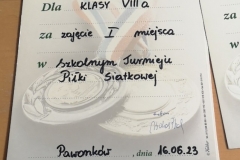 Dla KLASY VIII a
za zajęcie I miejsca
w Szkolnym Turnieju
Piłki Siatkowej
Pawonków, dnia 16.06.23